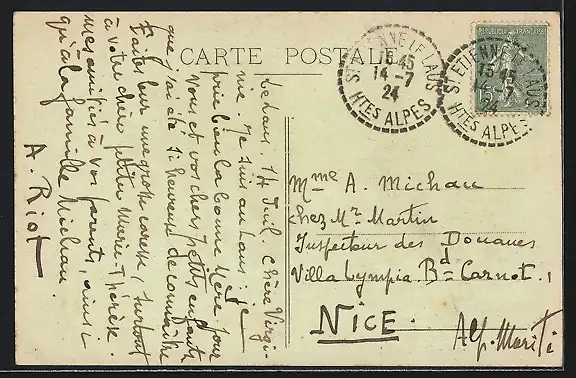 CARTE POSTALE
Le Laus. 14 Juil. Chère Virgi-
nie. Je suis au Laus : je
prie bien la bonne Mère pour
vous et vos chers petits enfants
que j'ai été si heureuse de connaître
Faites leur une grosse caresse, surtout
à votre chère petite Marie-Thérèse.
mes amitiés à vos parents, ainsi
qu'à la famille Michau.
A. Riot
ST ETIENNE LE LAUS
15 45
14 - 7
24
HTES ALPES
REPUBLIQUE FRANÇAISE
15
ST ETIENNE LE LAUS
15 45
-7
24
HTES ALPES
Mme A. Michau
chez Mr Martin
Inspecteur des Douanes
Villa Lympia. Bd Carnot. 1
NICE.
Alp. Mariti